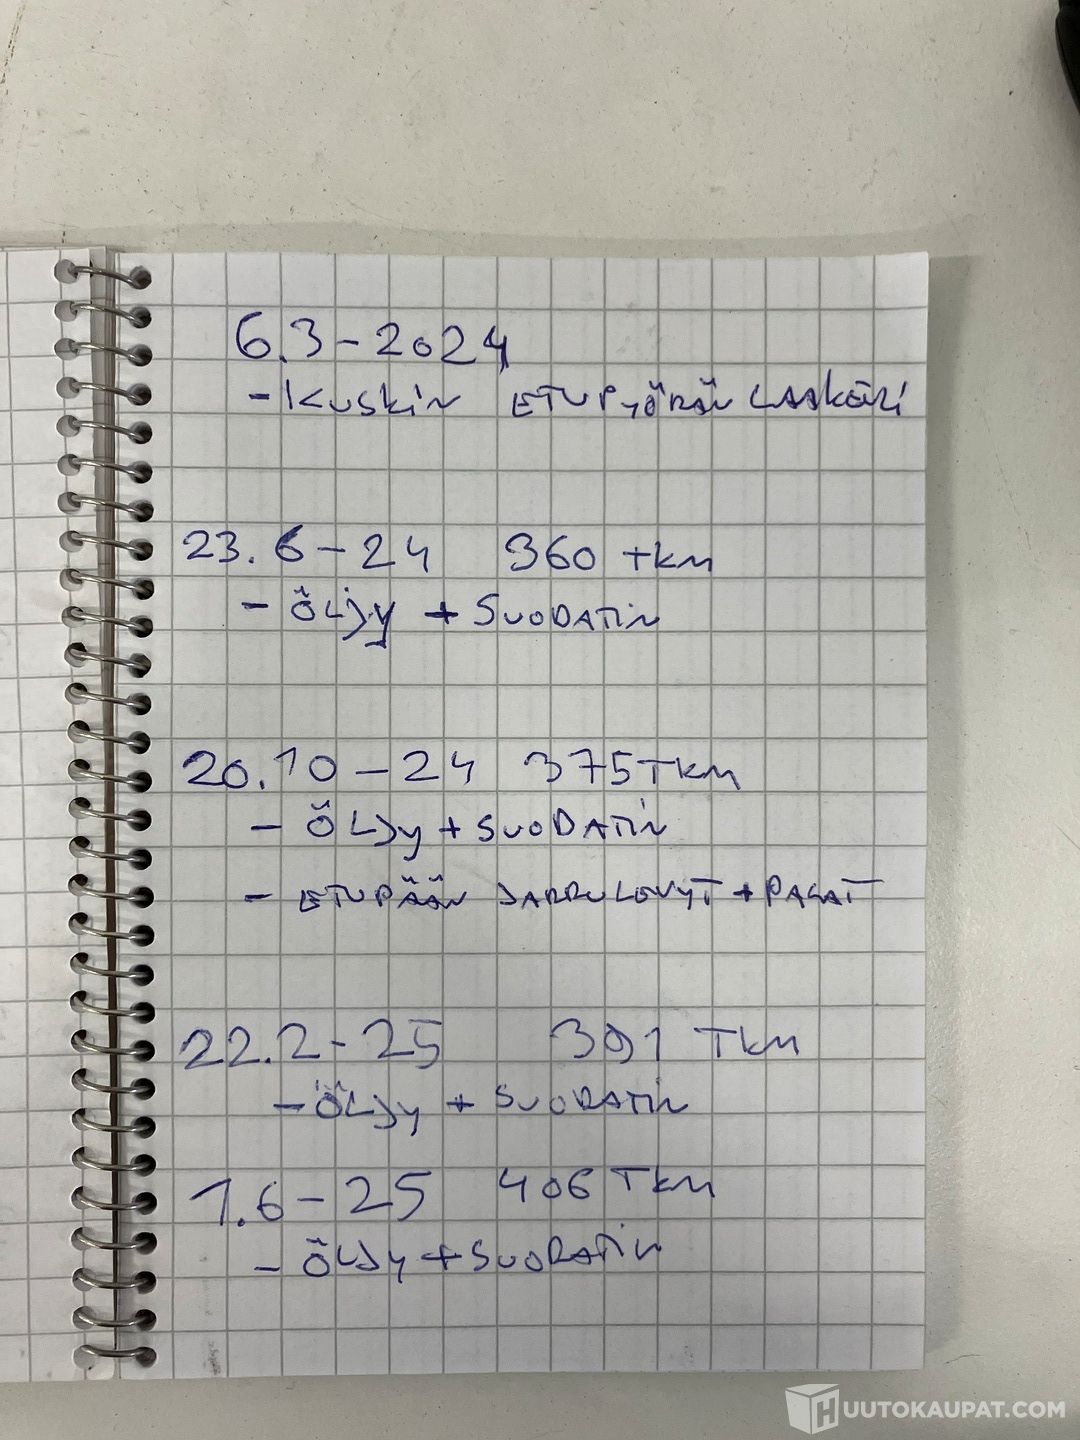 6.3-2024
- Kuskin ETUPYÖRÄN LAAKERI
23.6-24 360 TKM
- ÖLJY + SUODATIN
20.10-24 375 TKM
- ÖLJY + SUODATIN
- ETUPÄÄN JARRULEVYT + PALAT
22.2-25 391 TKM
- ÖLJY + SUODATIN
1.6-25 406 TKM
- ÖLJY + SUODATIN
HUUTOKAUPAT.COM